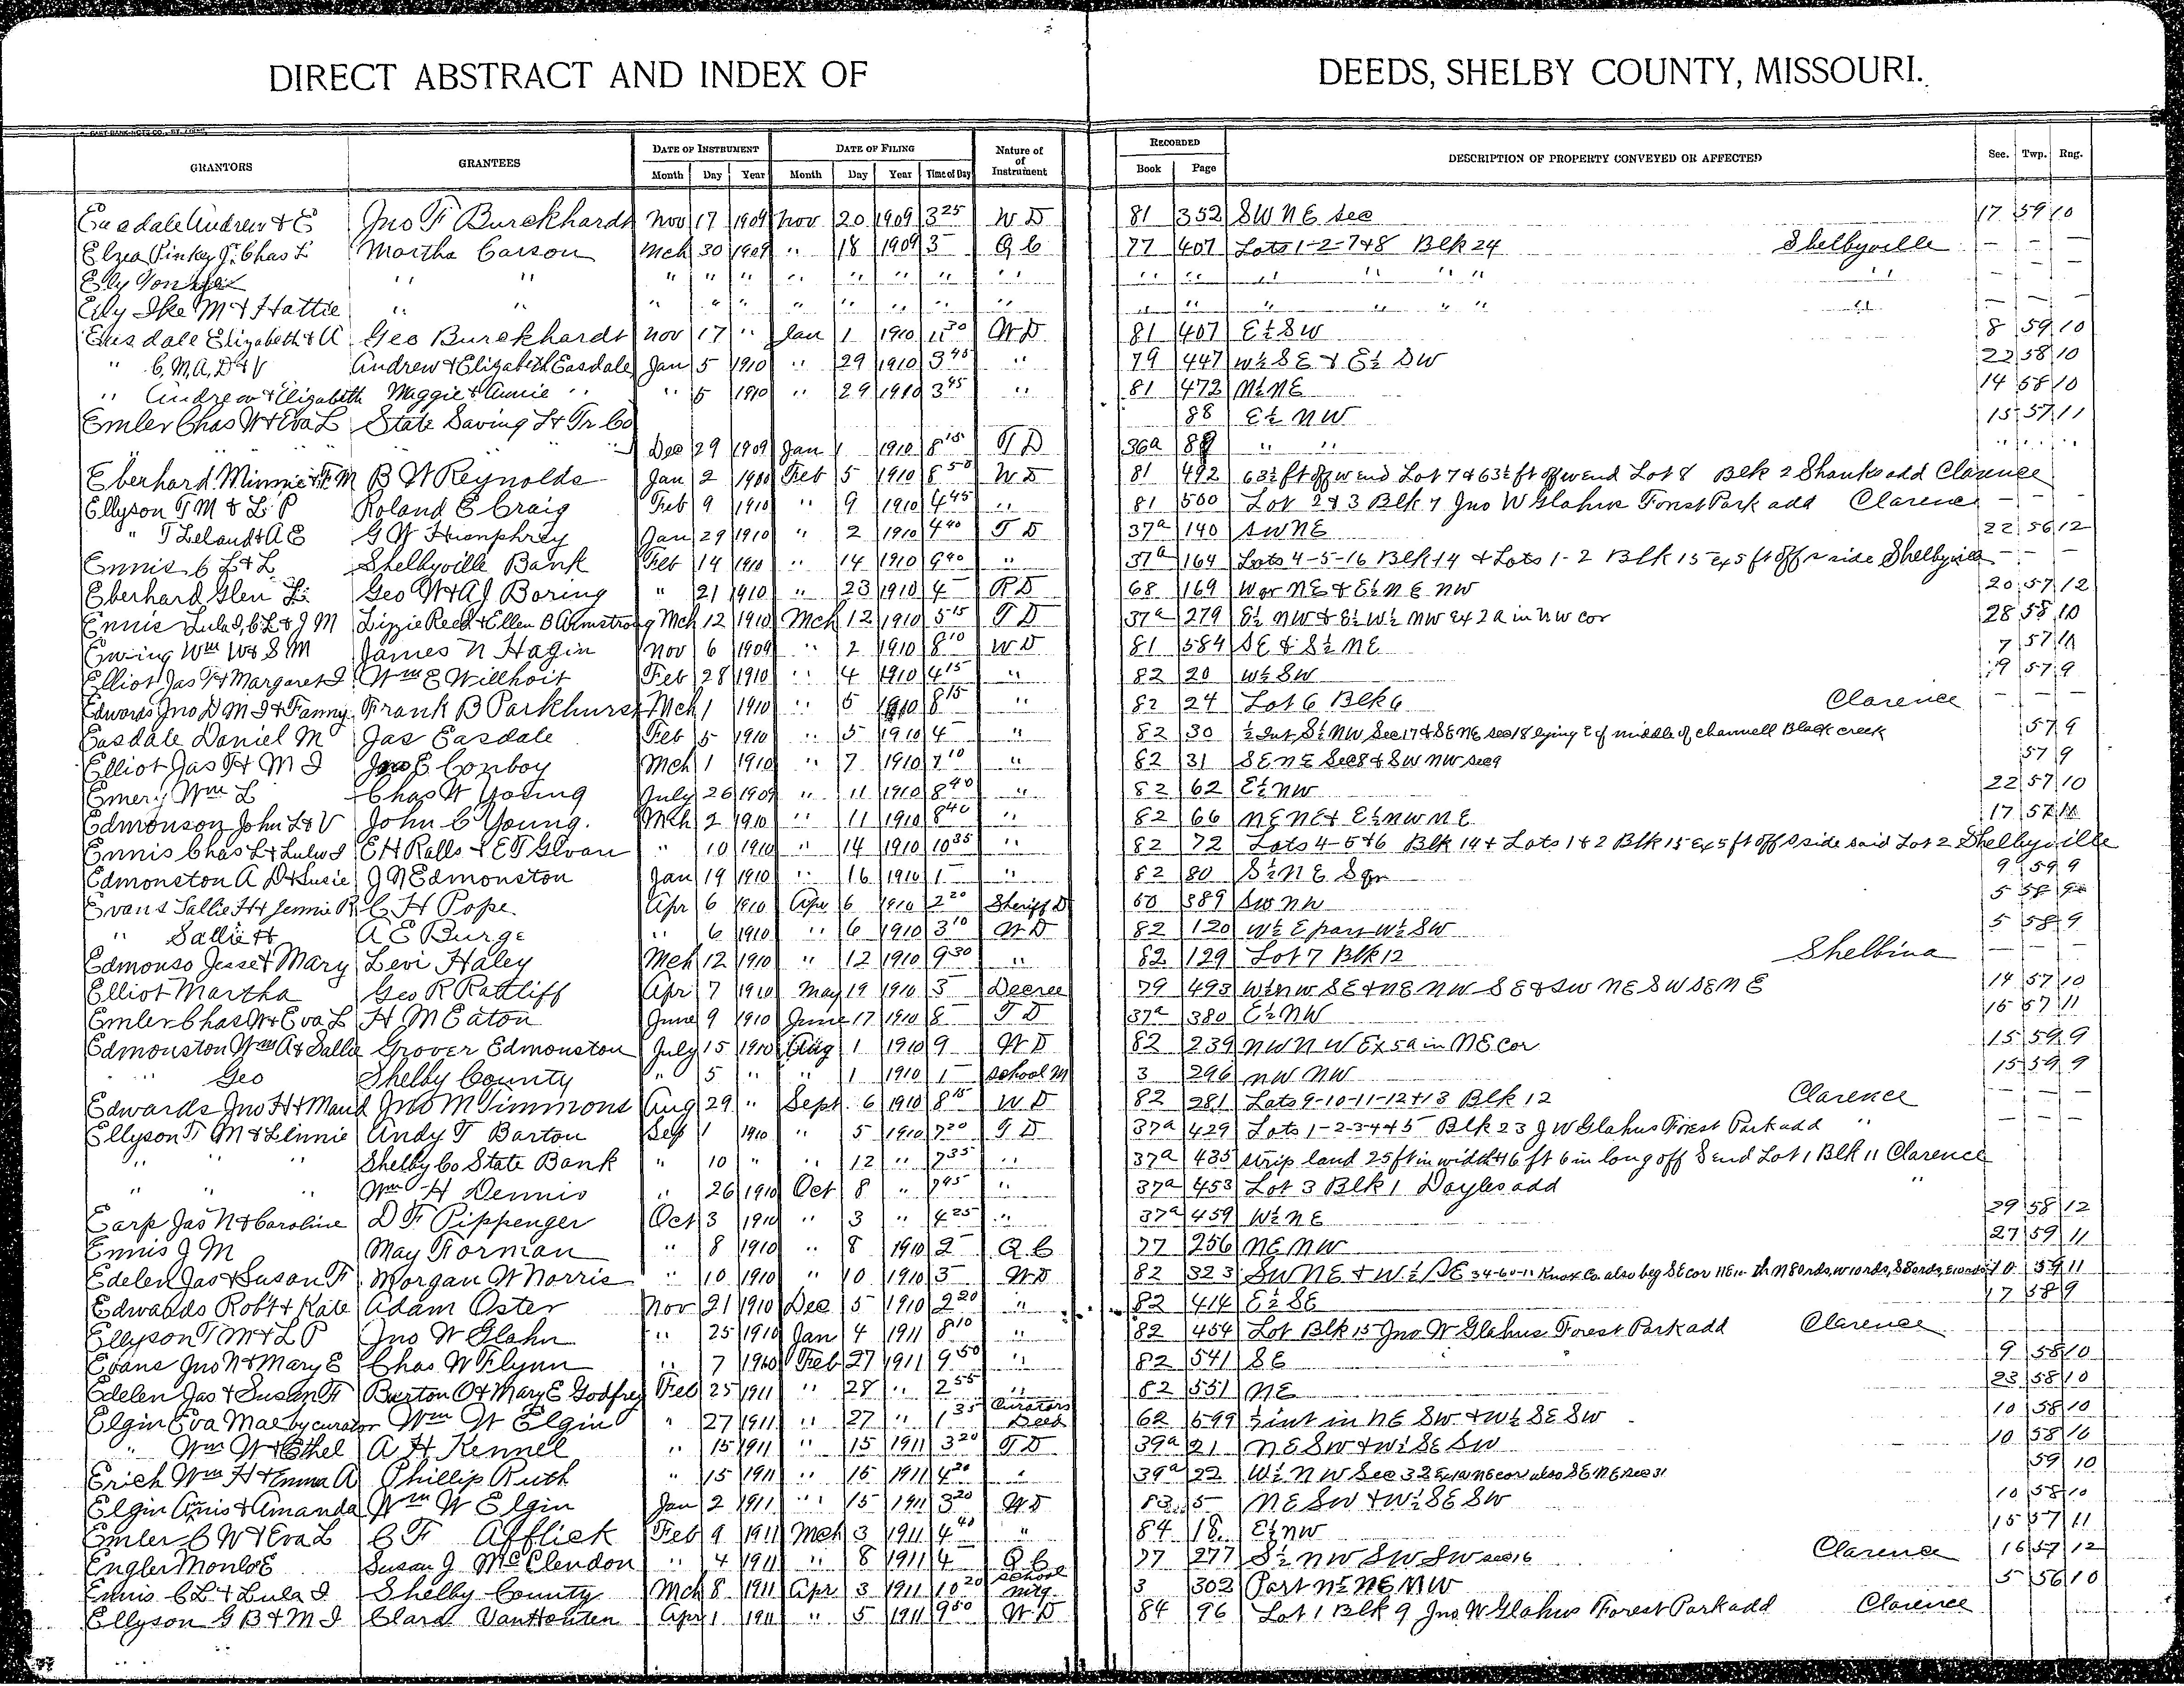 DIRECT ABSTRACT AND INDEX OF DEEDS, SHELBY COUNTY, MISSOURI.
GRANTORS GRANTEES DATE OF INSTRUMENT DATE OF FILING Nature of of Instrument RECORDED DESCRIPTION OF PROPERTY CONVEYED OR AFFECTED Sec. Twp. Rng.
Month Day Year Month Day Year Time of Day Book Page
Easdale Andrew & E Jno F Burckhardt Nov 17 1909 Nov 20 1909 3 25 W D 81 352 SW NE sec 17 59 10
Elzea Pinkey J. Chas L Martha Carson Mch 30 1909 " 18 1909 3 - Q C 77 407 Lots 1-2-7&8 Blk 24 Shelbyville - - -
Ely " " " " " " " " " " " " " " " " - -
Ely Ike M & Hattie " " " " " " " " " " " " " " " - - -
Easdale Elizabeth & A Geo Burckhardt Nov 17 " Jan 1 1910 11 30 W D 81 407 E½ SW 8 59 10
" C, M, A, D & V Andrew & Elizabeth Easdale Jan 5 1910 " 29 1910 3 45 " 79 447 W½ SE & E½ SW 22 58 10
" Andrew & Elizabeth Maggie & Annie " " 5 1910 " 29 1910 3 45 " 81 472 N½ NE 14 58 10
Emler Chas W & Eva L State Saving L & Tr Co 88 E½ NW 15 57 11
" " Dec 29 1909 Jan 1 1910 8 15 T D 36a 89 " " " " "
Eberhard Minnie & F M B W Reynolds Jan 2 1910 Feb 5 1910 8 50 W D 81 492 63½ ft off W end Lot 7 & 63½ ft off W end Lot 8 Blk 2 Shanks add Clarence
Ellyson T M & L P Roland E Craig Feb 9 1910 " 9 1910 4 45 " 81 500 Lot 2 & 3 Blk 7 Jno W Glahns Forest Park add Clarence - -
" T Leland & A E G W Humphrey Jan 29 1910 " 2 1910 4 40 T D 37a 140 SW NE 22 56 12
Ennis C L & L Shelbyville Bank Feb 14 1910 " 14 1910 9 40 " 37a 164 Lots 4-5-16 Blk 14 & Lots 1-2 Blk 15 Ex 5 ft off side Shelbyville - -
Eberhard Glen L. Geo W & A J Boring " 21 1910 " 23 1910 4 - R D 68 169 W qr NE & E½ NE NW 20 57 12
Ennis Lula J, C L & J M Lizzie Reed & Ellen B Armstrong Mch 12 1910 Mch 12 1910 5 15 T D 37a 279 E½ NW & E½ W½ NW Ex 2 a in NW cor 28 58 10
Ewing Wm W & S M James N Hagin Nov 6 1909 " 2 1910 8 10 W D 81 584 SE & S½ NE 7 57
Elliot Jas H & Margaret J Wm E Willhoit Feb 28 1910 " 4 1910 4 15 " 82 20 W½ SW 19 57 9
Edwards Jno D M J & Fanny Frank B Parkhurst Mch 1 1910 " 5 1910 8 15 " 82 24 Lot 6 Blk 6 Clarence - - -
Easdale Daniel M Jas Easdale Feb 5 1910 " 5 1910 4 - " 82 30 ½ Int S½ NW Sec 17 & SE NE sec 18 lying E of middle of channell Black creek 57 9
Elliot Jas H & M J Jno E Conboy Mch 1 1910 " 7 1910 7 10 " 82 31 SE NE Sec 8 & SW NW sec 9 57 9
Emery Wm L Chas W Young July 26 1909 " 11 1910 8 40 " 82 62 E½ NW 22 57 10
Edmonson John L & V John C Young. Mch 2 1910 " 11 1910 8 40 " 82 66 NE NE & E½ NW NE 17 57
Ennis Chas L & Lulu J E H Ralls & E T Sloan " 10 1910 " 14 1910 10 35 " 82 72 Lots 4-5&6 Blk 14 & Lots 1 & 2 Blk 15 Ex 5 ft off S side said Lot 2 Shelbyville
Edmonston A D & Susie J N Edmonston Jan 19 1910 " 16 1910 1 - " 82 80 S½ NE S qr 9 59 9
Evans Sallie H & Jennie R C H Pope Apr 6 1910 Apr 6 1910 2 20 Sheriff D 60 389 SW NW 5 58
" Sallie H A E Burge " 6 1910 " 6 1910 3 10 W D 82 120 W½ E part W½ SW 5 58 9
Edmonso Jesse & Mary Levi Haley Mch 12 1910 " 12 1910 9 30 " 82 129 Lot 7 Blk 12 Shelbina - - -
Elliot Martha Geo R Ratliff Apr 7 1910 May 19 1910 3 - Decree 79 493 W½ NW SE & NE NW SE & SW NE SW SE NE 14 57 10
Emler Chas W & Eva L H M Eaton June 9 1910 June 17 1910 8 - T D 37a 380 E½ NW 15 57 11
Edmonston Wm A & Sallie Grover Edmonston July 15 1910 Aug 1 1910 9 W D 82 239 NW NW Ex 5 a in NE cor 15 59 9
" Geo Shelby County " 5 " " 1 1910 1 - School M 3 296 NW NW 15 59 9
Edwards Jno H & Maud Jno M Timmons Aug 29 " Sept 6 1910 8 15 W D 82 281 Lots 9-10-11-12&13 Blk 12 Clarence - - -
Ellyson T M & Linnie Andy T Barton Sep 1 1910 " 5 1910 7 20 T D 37a 429 Lots 1-2-3-4&5 Blk 23 J W Glahns Forest Park add " - - -
" " " Shelby Co State Bank " 10 " " 12 " 7 35 " 37a 435 strip land 25 ft in width & 6 ft 6 in long off S end Lot 1 Blk 11 Clarence
" " " Wm H Dennis " 26 1910 Oct 8 " 7 45 " 37a 453 Lot 3 Blk 1 Doyles add "
Earp Jas N & Caroline D F Pippenger Oct 3 1910 " 3 " 4 25 " 37a 459 W½ NE 29 58 12
Ennis J M May Forman " 8 1910 " 8 1910 2 - Q C 77 256 NE NW 27 59 11
Edelen Jas & Susan F Morgan W Norris " 10 1910 " 10 1910 3 - W D 82 323 SW NE & W½ SE 34-60-11 Knox Co. also beg SE cor th N 80rds, W 10rds, S 80rds, E 10rds 10 59 11
Edwards Robt & Kate Adam Oster Nov 21 1910 Dec 5 1910 2 20 " 82 414 E½ SE 17 58 9
Ellyson T M & L P Jno W Glahn " 25 1910 Jan 4 1911 8 10 " 82 454 Lot Blk 15 Jno W Glahns Forest Park add Clarence
Evans Jno N & Mary E Chas W Flynn " 7 1910 Feb 27 1911 9 50 " 82 541 SE 9 58 10
Edelen Jas & Susan F Burton O & Mary E Godfrey Feb 25 1911 " 28 " 2 55 " 82 551 NE 23 58 10
Elgin Eva Mae by curator Wm W Elgin " 27 1911 " 27 " 1 35 Curators Deed 62 599 int in NE SW & W½ SE SW 10 58 10
" Wm W & Ethel A H Kennel " 15 1911 " 15 1911 3 20 T D 39a 21 NE SW & W½ SE SW 10 58 10
Erich Wm H & Emma A Phillip Ruth " 15 1911 " 15 1911 4 20 " 39a 22 W½ NW Sec 32 Ex 1a NE cor also SE NE Sec 31 59 10
Elgin Anis & Amanda Wm W Elgin Jan 2 1911 " 15 1911 3 20 W D 83 5 NE SW & W½ SE SW 10 58 10
Emler C W & Eva L C F Afflick Feb 9 1911 Mch 3 1911 4 40 " 84 18 E½ NW 15 57 11
Engler Monroe Susan J McClendon " 4 1911 " 8 1911 4 - Q C 77 277 S½ NW SW SW sec 16 Clarence 16 57 12
Ennis C L & Lula J Shelby County Mch 8 1911 Apr 3 1911 10 20 School Mtg. 3 302 Part N½ NE NW 5 56 10
Ellyson G B & M J Clara VanHouten Apr 1 1911 " 5 1911 9 50 W D 84 96 Lot 1 Blk 9 Jno W Glahns Forest Park add Clarence